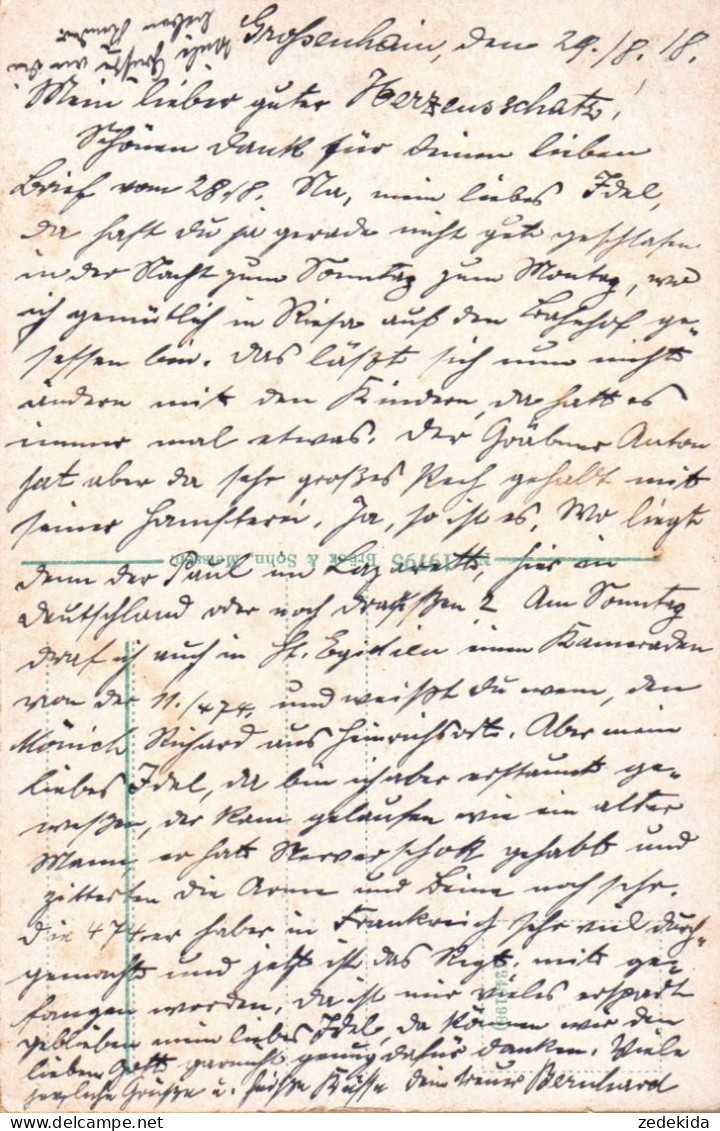 Großenhain, den 29./8. 18.
Mein lieber guter Herzensschatz!
Schönen Dank für deinen lieben
Brief vom 28./8. Na, mein liebes Idel,
da hast du ja gerade nicht gut geschlafen
in der Nacht zum Sonntag zum Montag, wo
ich gemütlich in Riesa auf den Bahnhof ge-
sessen bin. Das läßt sich nun nicht
ändern mit den Kindern, da hatt es
immer mal etwas. Der Gräbner Anton
hat aber da sehr großes Pech gehabt mit
seiner Hamsterei. Ja, so ist es. Wo liegt
No 19795 Brück & Sohn, Meissen
denn der Paul im Lazarett, hier in
Deutschland oder noch draußen? Am Sonntag
traf ich auch in St. Egidien einen Kameraden
von der 11./474. und weißt du wem, den
Mönich Richard aus Heinrichsort. Aber mein
liebes Idel, da bin ich aber erstaunt ge-
weßen, der kam gelaufen wie ein alter
Mann, er hatt Nervenschok gehabt und
zitterten die Arme und Beine noch sehr.
Die 474er haben in Frankreich sehr viel durch-
gemacht und jetzt ist das Regt. mit ge-
fangen worden, da ist mir vieles erspart
geblieben mein liebes Idel, da können wir den
lieben Gott garnicht genug dafür danken. Viele
herzliche Grüße u. heiße Küsse dein treuer Bernhard
zedekida